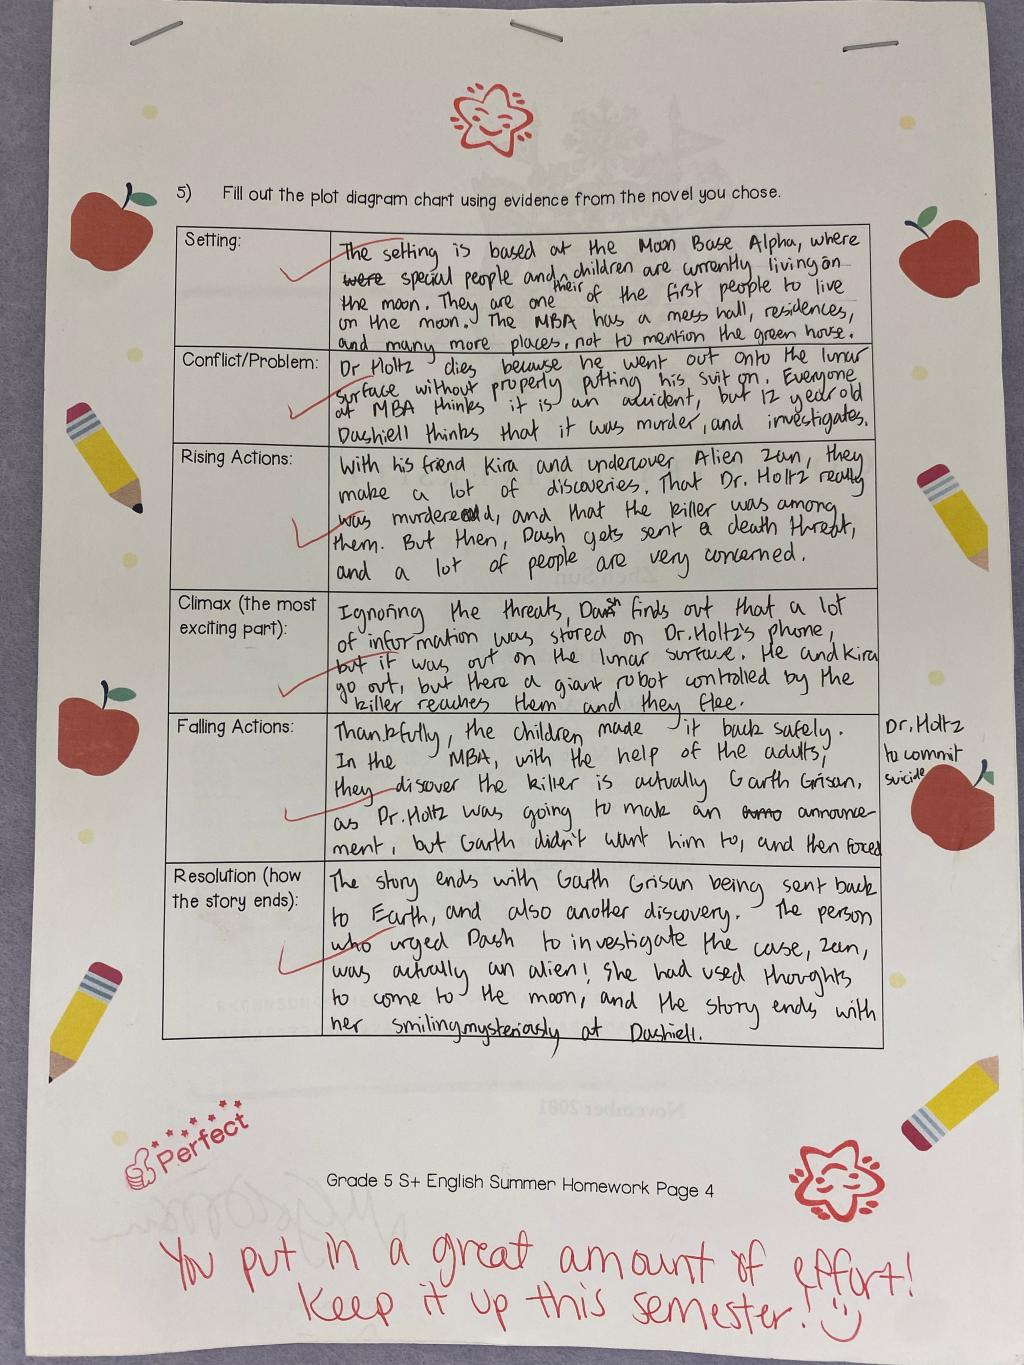 5) Fill out the plot diagram chart using evidence from the novel you chose.
Setting:
The setting is based at the Moon Base Alpha, where
were special people and their children are currently living on
the moon. They are one of the first people to live
on the moon. The MBA has a mess hall, residences,
and many more places, not to mention the green house.
Conflict/Problem:
Dr Holtz dies because he went out onto the lunar
surface without properly putting his suit on. Everyone
at MBA thinks it is an accident, but 12 year old
Dashiell thinks that it was murder, and investigates.
Rising Actions:
With his friend Kira and undercover Alien Zan, they
make a lot of discoveries. That Dr. Holtz really
was murdered, and that the killer was among
them. But then, Dash gets sent a death threat,
and a lot of people are very concerned.
Climax (the most
exciting part):
Ignoring the threats, Dash finds out that a lot
of information was stored on Dr. Holtz's phone,
but it was out on the lunar surface. He and Kira
go out, but there a giant robot controlled by the
killer reaches them and they flee.
Falling Actions:
Thankfully, the children made it back safely.
In the MBA, with the help of the adults,
they discover the killer is actually Garth Grisan,
as Dr. Holtz was going to make an announce-
ment, but Garth didn't want him to, and then forced
Dr. Holtz
to commit
suicide
Resolution (how
the story ends):
The story ends with Garth Grisan being sent back
to Earth, and also another discovery. The person
who urged Dash to investigate the case, Zan,
was actually an alien! She had used thoughts
to come to the moon, and the story ends with
her smiling mysteriously at Dashiell.
Perfect
Grade 5 S+ English Summer Homework Page 4
You put in a great amount of effort!
Keep it up this semester!